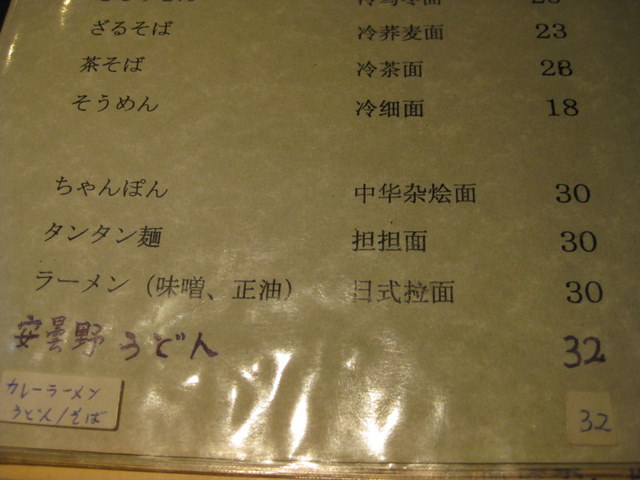 ざるそば 冷荞麦面 23
茶そば 冷茶面 28
そうめん 冷细面 18
ちゃんぽん 中华杂烩面 30
タンタン麺 担担面 30
ラーメン（味噌、正油） 日式拉面 30
安曇野うどん 32
カレーラーメン
うどん/そば 32